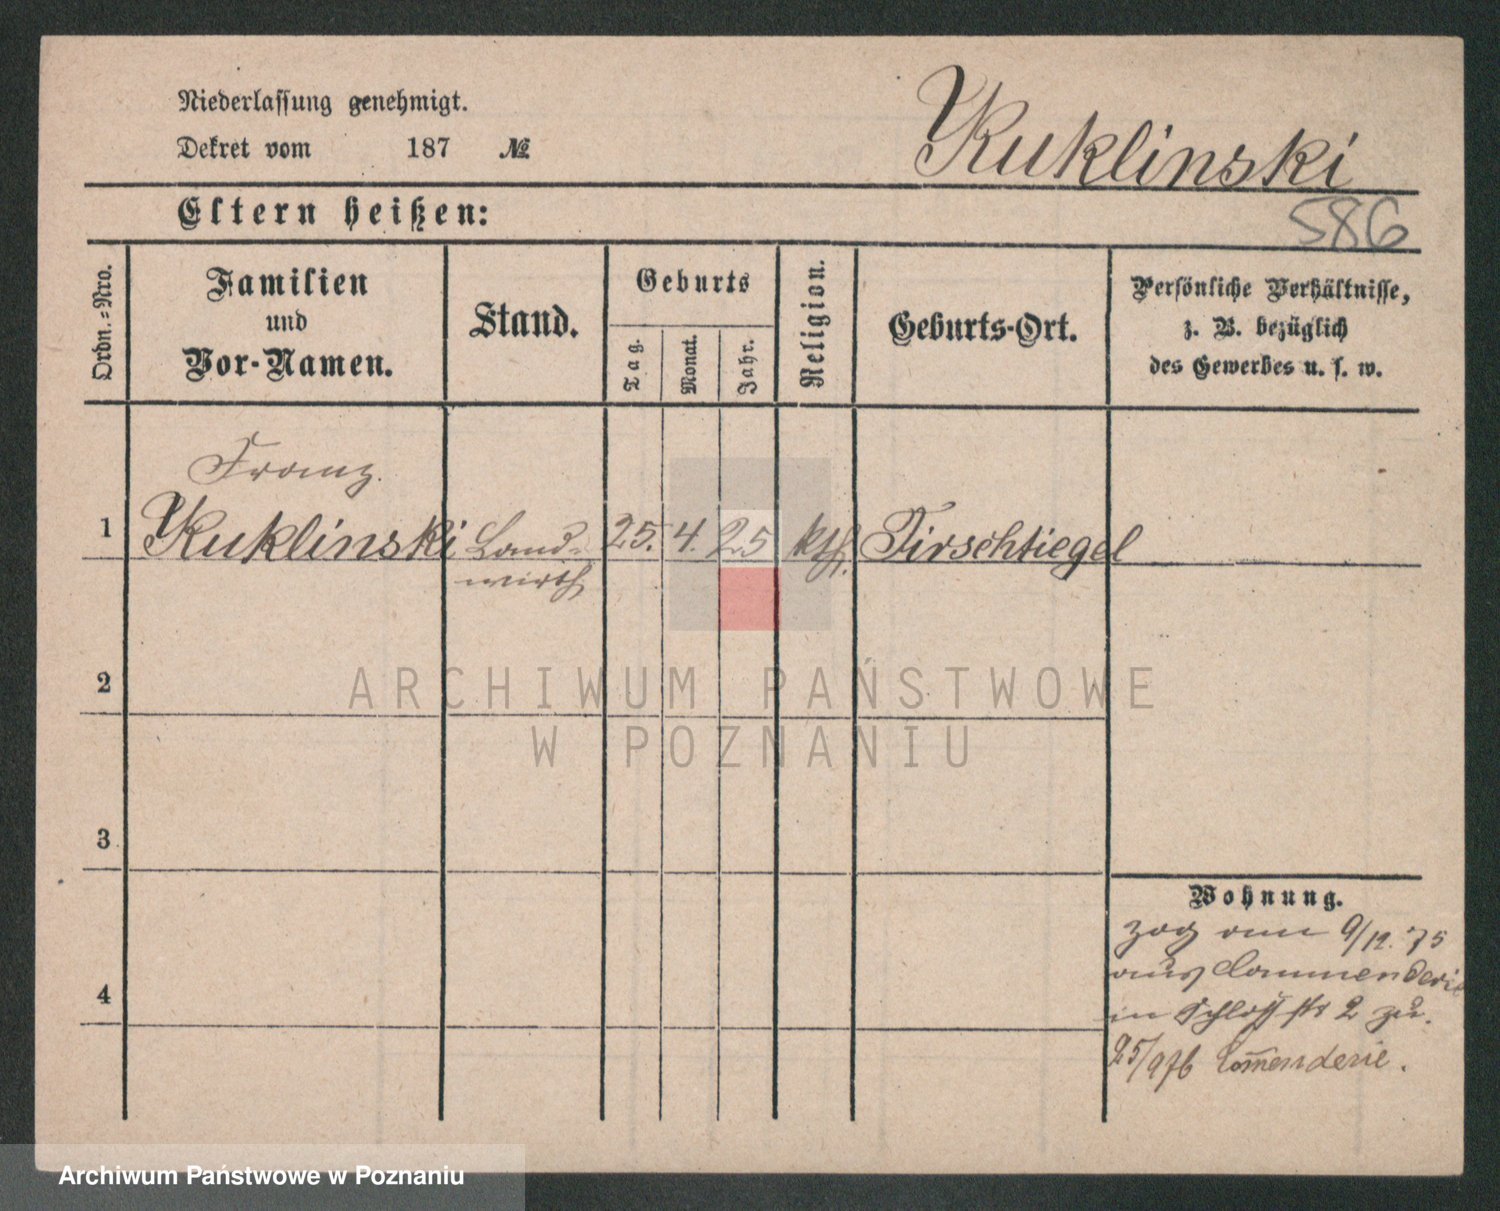 Niederlassung genehmigt.
Dekret vom 187 №
Kuklinski
Eltern heißen:
586
Ordn.-Nro.
Familien
und
Vor-Namen.
Stand.
Geburts
Tag.
Monat.
Jahr.
Religion.
Geburts-Ort.
Persönliche Verhältnisse,
z. B. bezüglich
des Gewerbes u. s. w.
Franz.
1 Kuklinski Land- 25. 4. 25 kth. Tirschtiegel
wirth
2
3
4
Wohnung.
zog am 9/12. 75
aus Commenderie
in Schloßstr 2 zu.
25/9 76 Com̄enderie.
ARCHIWUM PAŃSTWOWE
W POZNANIU
Archiwum Państwowe w Poznaniu